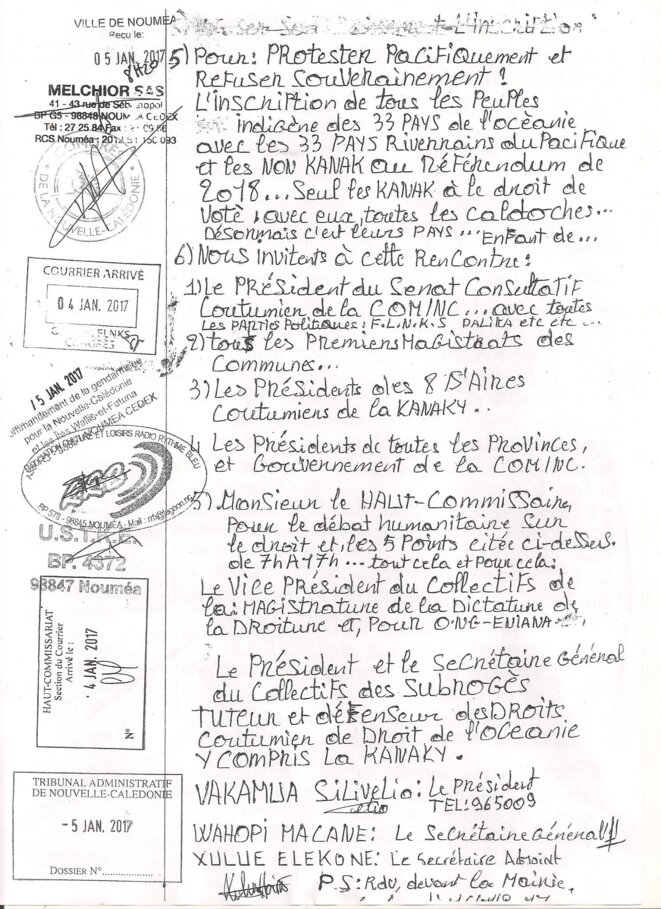 VILLE DE NOUMEA
Reçu le:
05 JAN. 2017
8H20
MELCHIOR SAS
41 - 43 rue de Sébastopol
BP G5 - 98848 NOUMEA CEDEX
Tél : 27 25 84 Fax :
RCS Nouméa :
DE LA NOUVELLE-CALÉDONIE
COURRIER ARRIVÉ
04 JAN. 2017
FLNKS
CONGRÈS
15 JAN. 2017
Commandement de la gendarmerie
pour la Nouvelle-Calédonie
et les îles Wallis-et-Futuna
NOUMEA CEDEX
ET LOISIRS RADIO RYTHME BLEU
BP 578 - 98845 NOUMÉA - Mail : rrb@lagoon.nc
U.S.T.K.E.
BP. 4372
98847 Nouméa
HAUT-COMMISSARIAT
Section du Courrier
Arrivé le :
4 JAN. 2017
N°
TRIBUNAL ADMINISTRATIF
DE NOUVELLE-CALEDONIE
-5 JAN. 2017
DOSSIER N°
L'inscription
5) Pour: PROTESTER PACifiquement et
Refuser Souverainement !
L'inscription de tous les Peuples
indigène des 33 PAYS de l'ocèanie
avec les 33 PAYS Riverrains du Pacifique
et les NON KANAK au Référendum de
2018... Seul les KANAK à le droit de
Votè, avec eux, toutes les caldoches...
Désormais c'est leurs PAYS... Enfant de...
6) Nous invitents à cette Rencontre:
1) Le PRésident du Senat ConsultatiF
Coutumien de la COMINC... avec toutes
Les PARties Politiques: F.L.N.K.S DALIKA etc etc...
2) tous les Premiers Magistrats des
Communes...
3) Les PRésidents des 8 D'Aires
Coutumiens de la KANAKY..
4 Les Présidents de toutes les Provinces,
et Gouvernement de la COMINC.
5) Monsieur le HAUT-Commissaire,
Pour le débat humanitaire Sur
le droit et, les 5 Points citée ci-dessus.
de 7hA17h... tout cela et Pour cela:
Le Vice Président du Collectifs de
la: MAGistrature de la Dictature de
la DRoiture et, Pour ONG-ENIANA
Le Président et le Secrétaire Général
du Collectifs des Subrogés
TUTEUR et défenseur des DRoits
Coutumien de Droit de l'Oceanie
Y COMPRIS La KANAKY.
VAKAMUA SiLiveLio: Le Président
TEL: 965009
WAHOPI MACANE: Le Secrétaire Général
XULUE ELEKONE: Le Secrétaire Adjoint
P.S: Rdv, devant la Mairie,